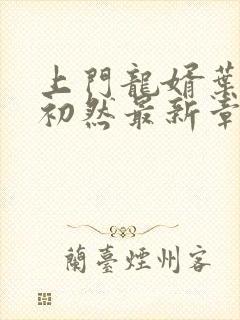 上門龍婿葉
初然最新章
蘭臺煙州客